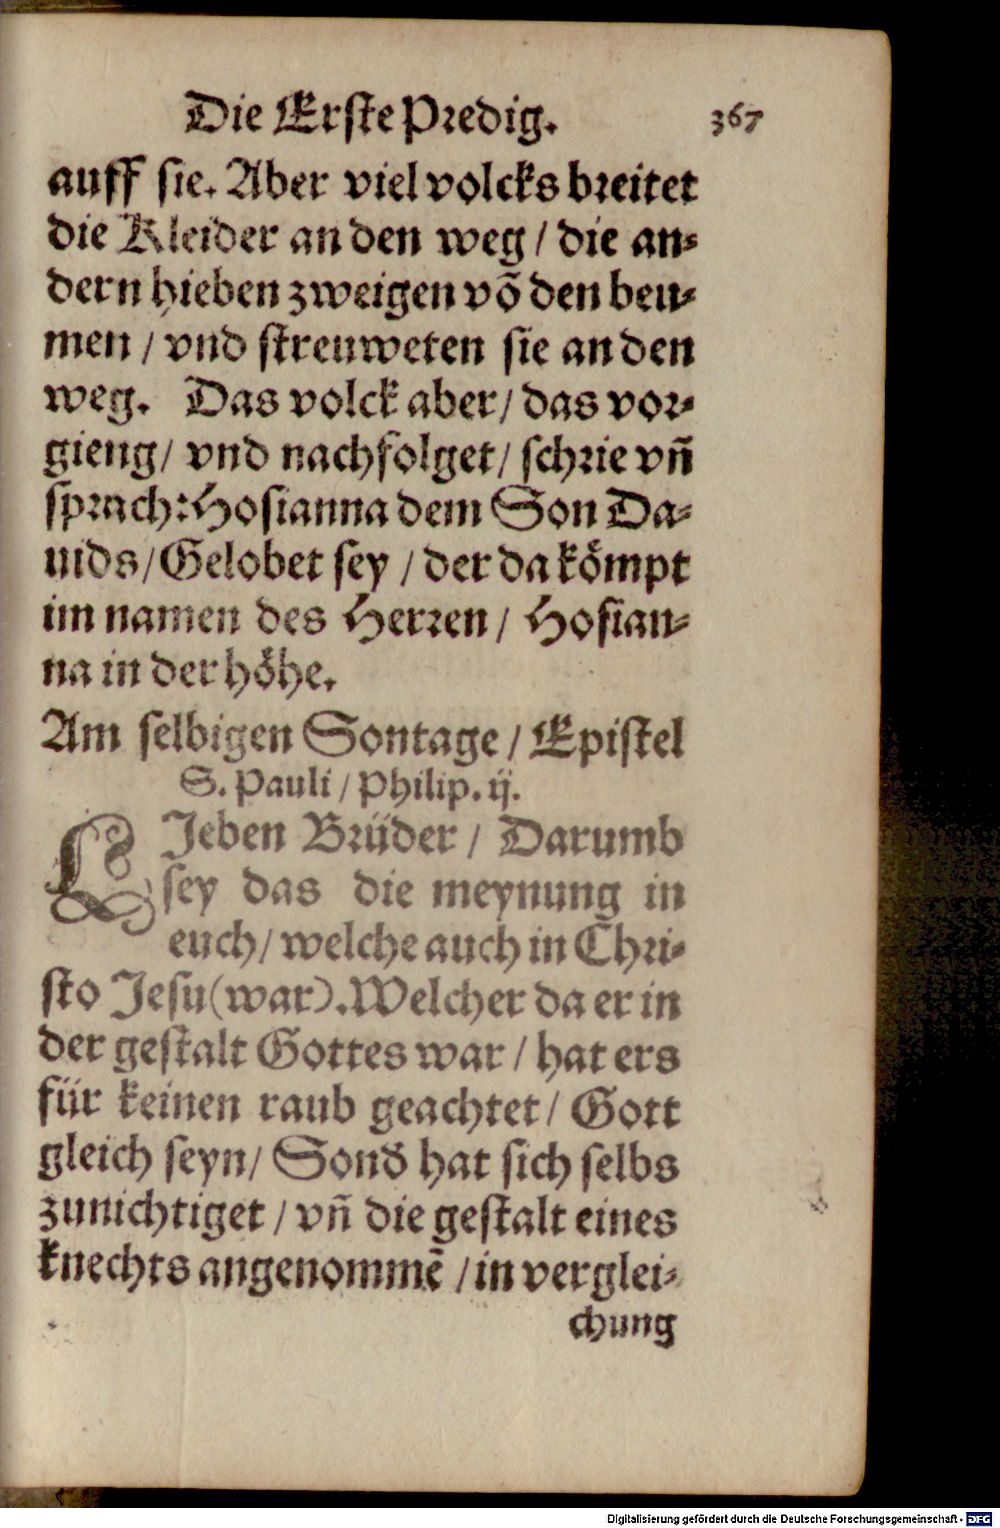 Die Erste Predig. 367
auff sie. Aber viel volcks breitet
die Kleider an den weg / die an⸗
dern hieben zweigen võ den beu⸗
men / vnd streuweten sie an den
weg. Das volck aber / das vor⸗
gieng / vnd nachfolget / schrie vñ
sprach: Hosianna dem Son Da⸗
uids / Gelobet sey / der da kömpt
im namen des Herren / Hosian⸗
na in der höhe.
Am selbigen Sontage / Epistel
S. Pauli / Philip. ij.
LJeben Brüder / Darumb
sey das die meynung in
euch / welche auch in Chri⸗
sto Jesu (war). Welcher da er in
der gestalt Gottes war / hat ers
für keinen raub geachtet / Gott
gleich seyn / Sond̃ hat sich selbs
zunichtiget / vñ die gestalt eines
knechts angenommẽ / in verglei⸗
chung
Digitalisierung gefördert durch die Deutsche Forschungsgemeinschaft - DFG